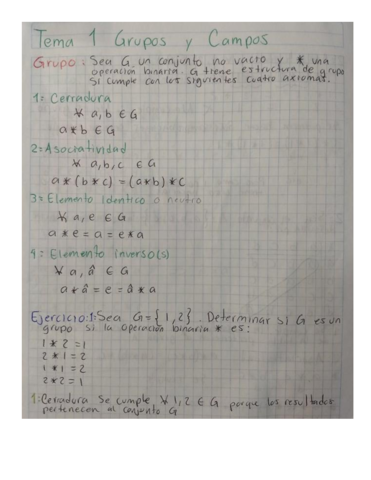 Tema 1 Grupos y Campos
Grupo: Sea G un conjunto no vacio y * una
operación binaria. G tiene estructura de grupo
si cumple con los siguientes cuatro axiomas.
1= Cerradura
∀ a,b ∈ G
a * b ∈ G
2= Asociatividad
∀ a,b,c ∈ G
a * (b * c) = (a*b) * c
3= Elemento Identico o neutro
∀ a,e ∈ G
a * e = a = e * a
4= Elemento inverso(s)
∀ a, â ∈ G
a * â = e = â * a
Ejercicio:1: Sea G={1,2}. Determinar si G es un
grupo si la operación binaria * es:
1 * 2 = 1
2 * 1 = 2
1 * 1 = 2
2 * 2 = 1
1: Cerradura Se cumple ∀ 1,2 ∈ G porque los resultados
pertenecen al conjunto G